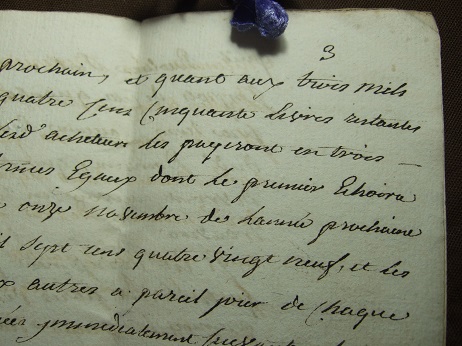 3
prochain, et quant aux trois mils
quatre Cens Cinquante Livres restantes
Lesd. acheteurs les payeront en trois
termes Egaux dont le premier Echoira
onze novembre de Lannée prochaine
mil sept cens quatre vingt neuf, et les
deux autres a pareil jour de Chaque
immediatement